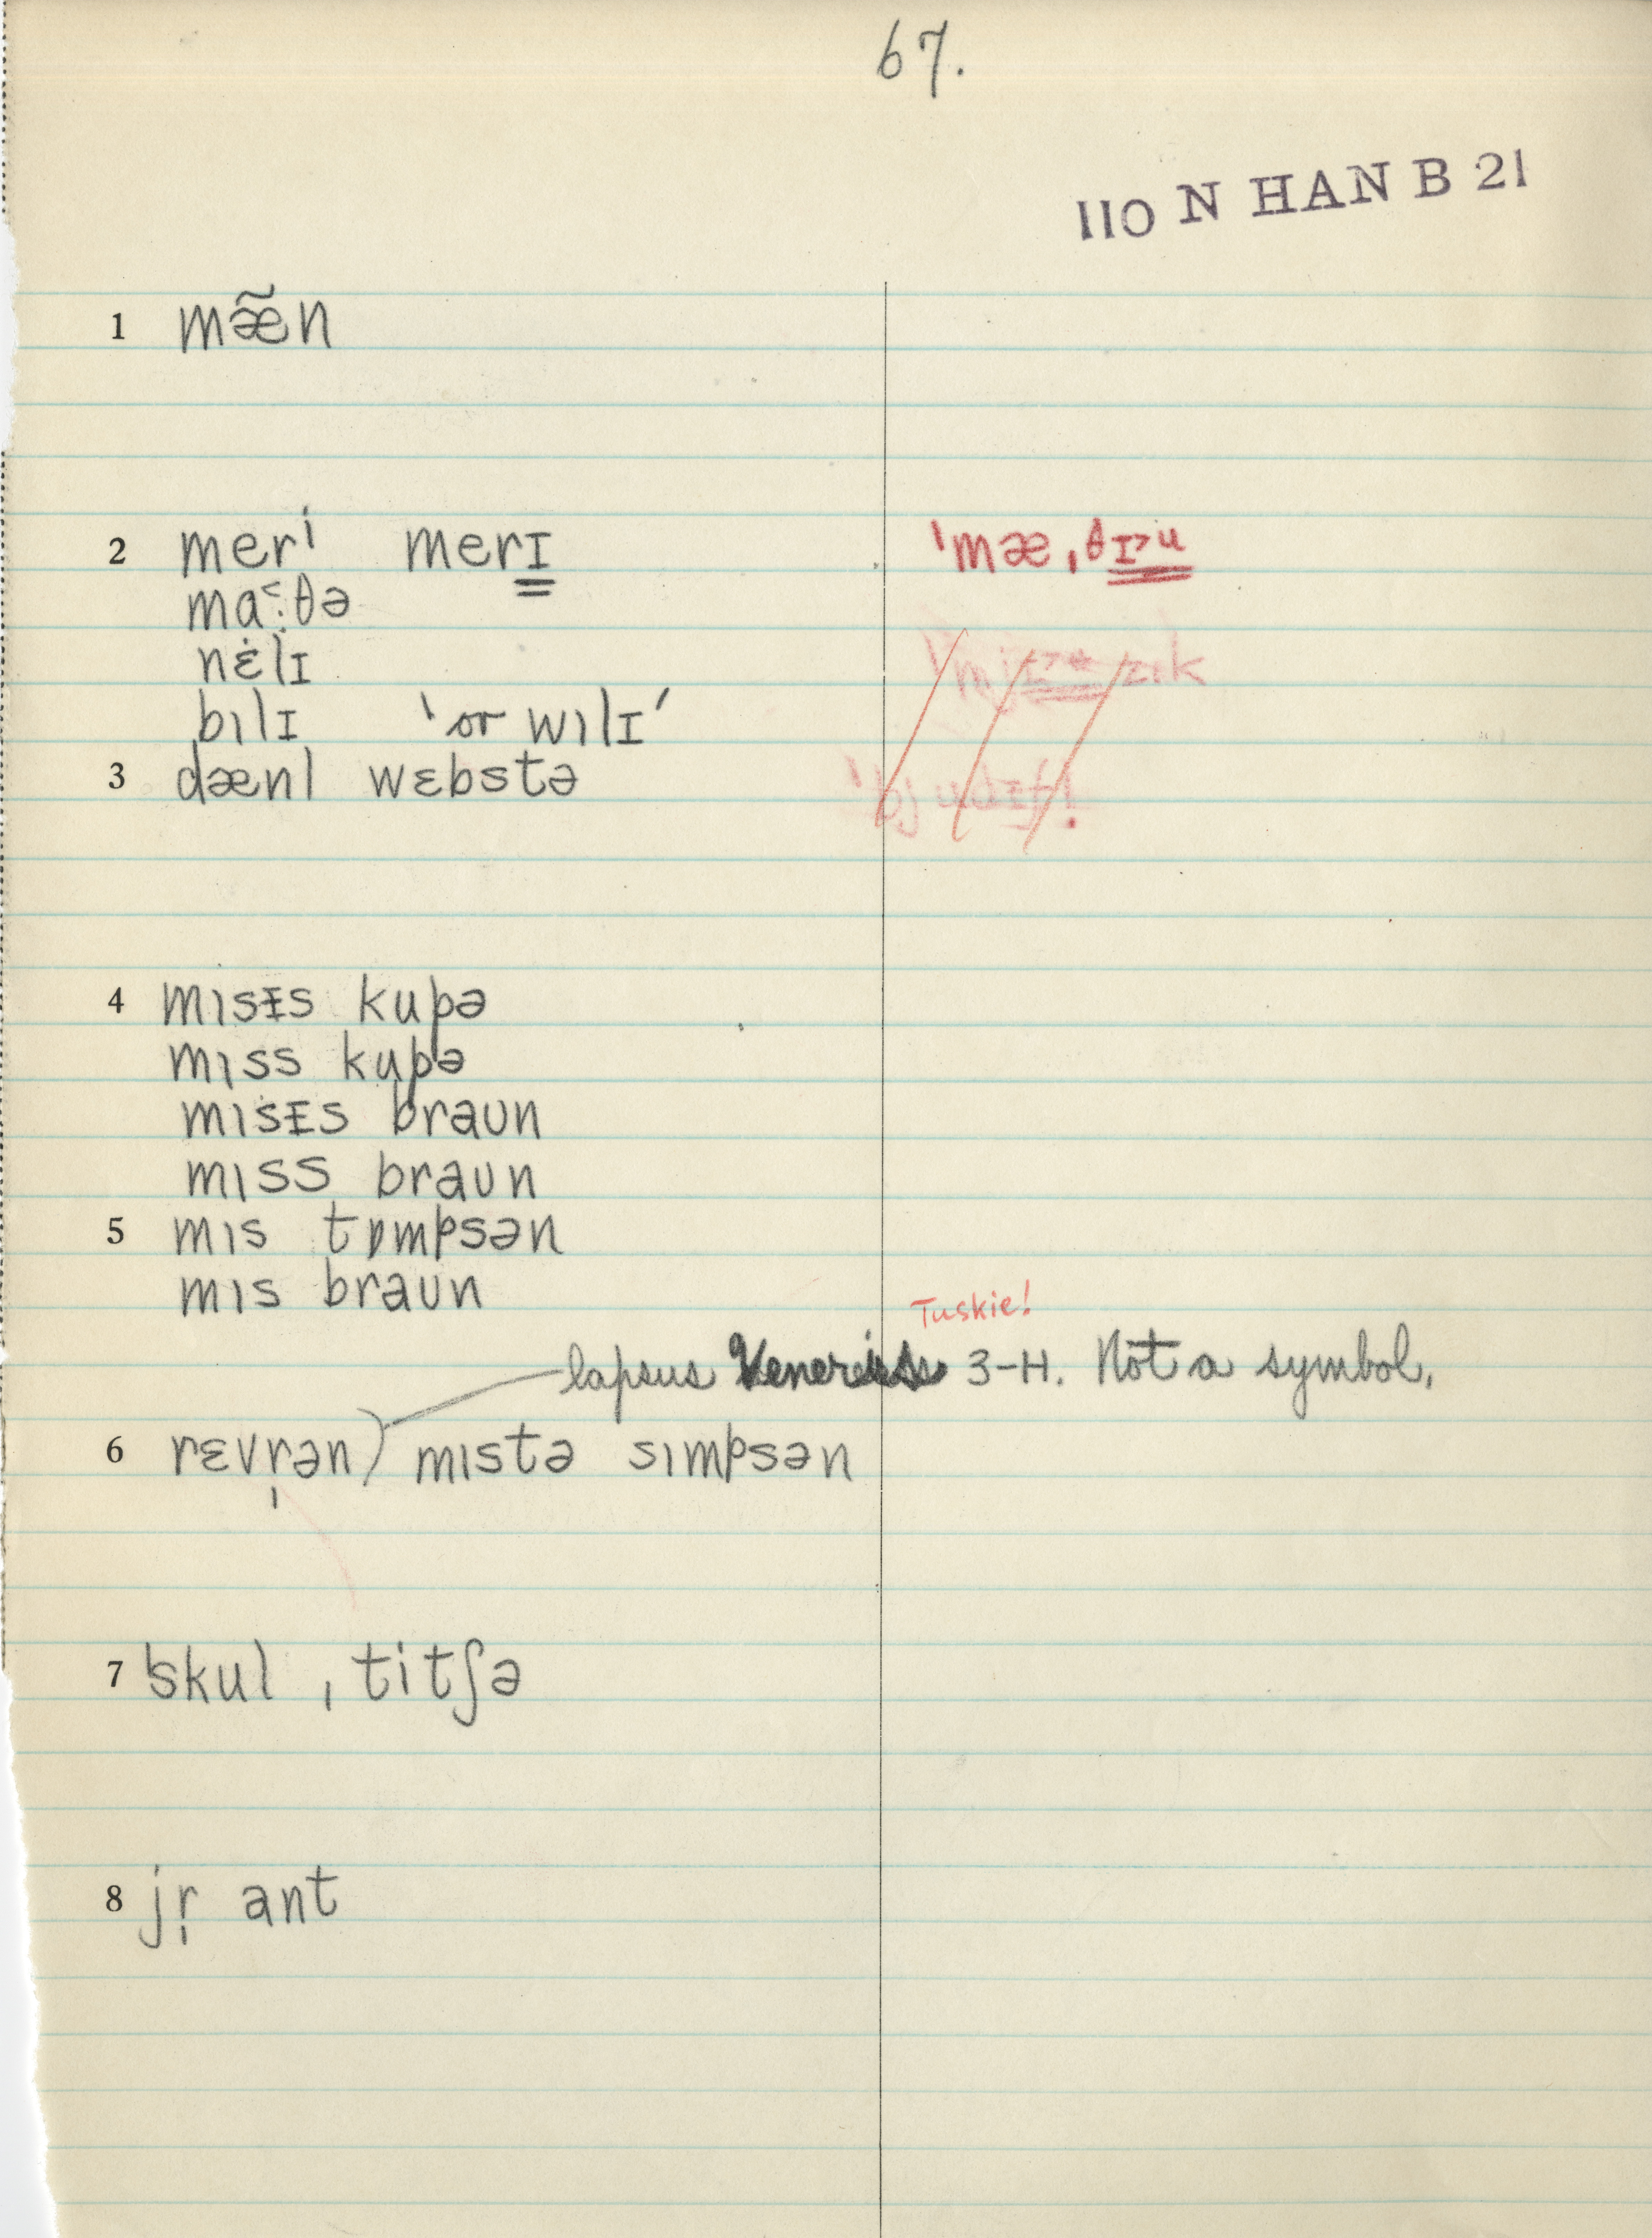 67.
110 N HAN B 21
1 mæ̃n
2 merⁱ merɪ 'mæ ˌθɪ>u
ma˂·θə
nɛ̇lɪ
bɩlɪ 'or wɩlɪ'
3 dænl wɛbstə
4 mɩsɪs kupə
mɩss kupə
mɩsɪs braʊn
mɩss braʊn
5 mɩs tɒmpsən
mɩs braʊn
Tuskie!
lapsus Veneris 3-H. Not a symbol.
6 rɛvr̩ən) mɩstə sɩmpsən
7 'skul ˌtitʃə
8 jr̩ ant